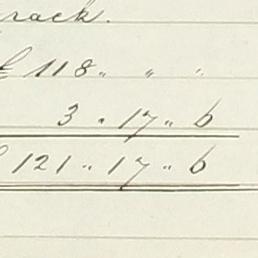 rack.
£ 118 " " "
3 " 17 " 6
£ 121 " 17 " 6